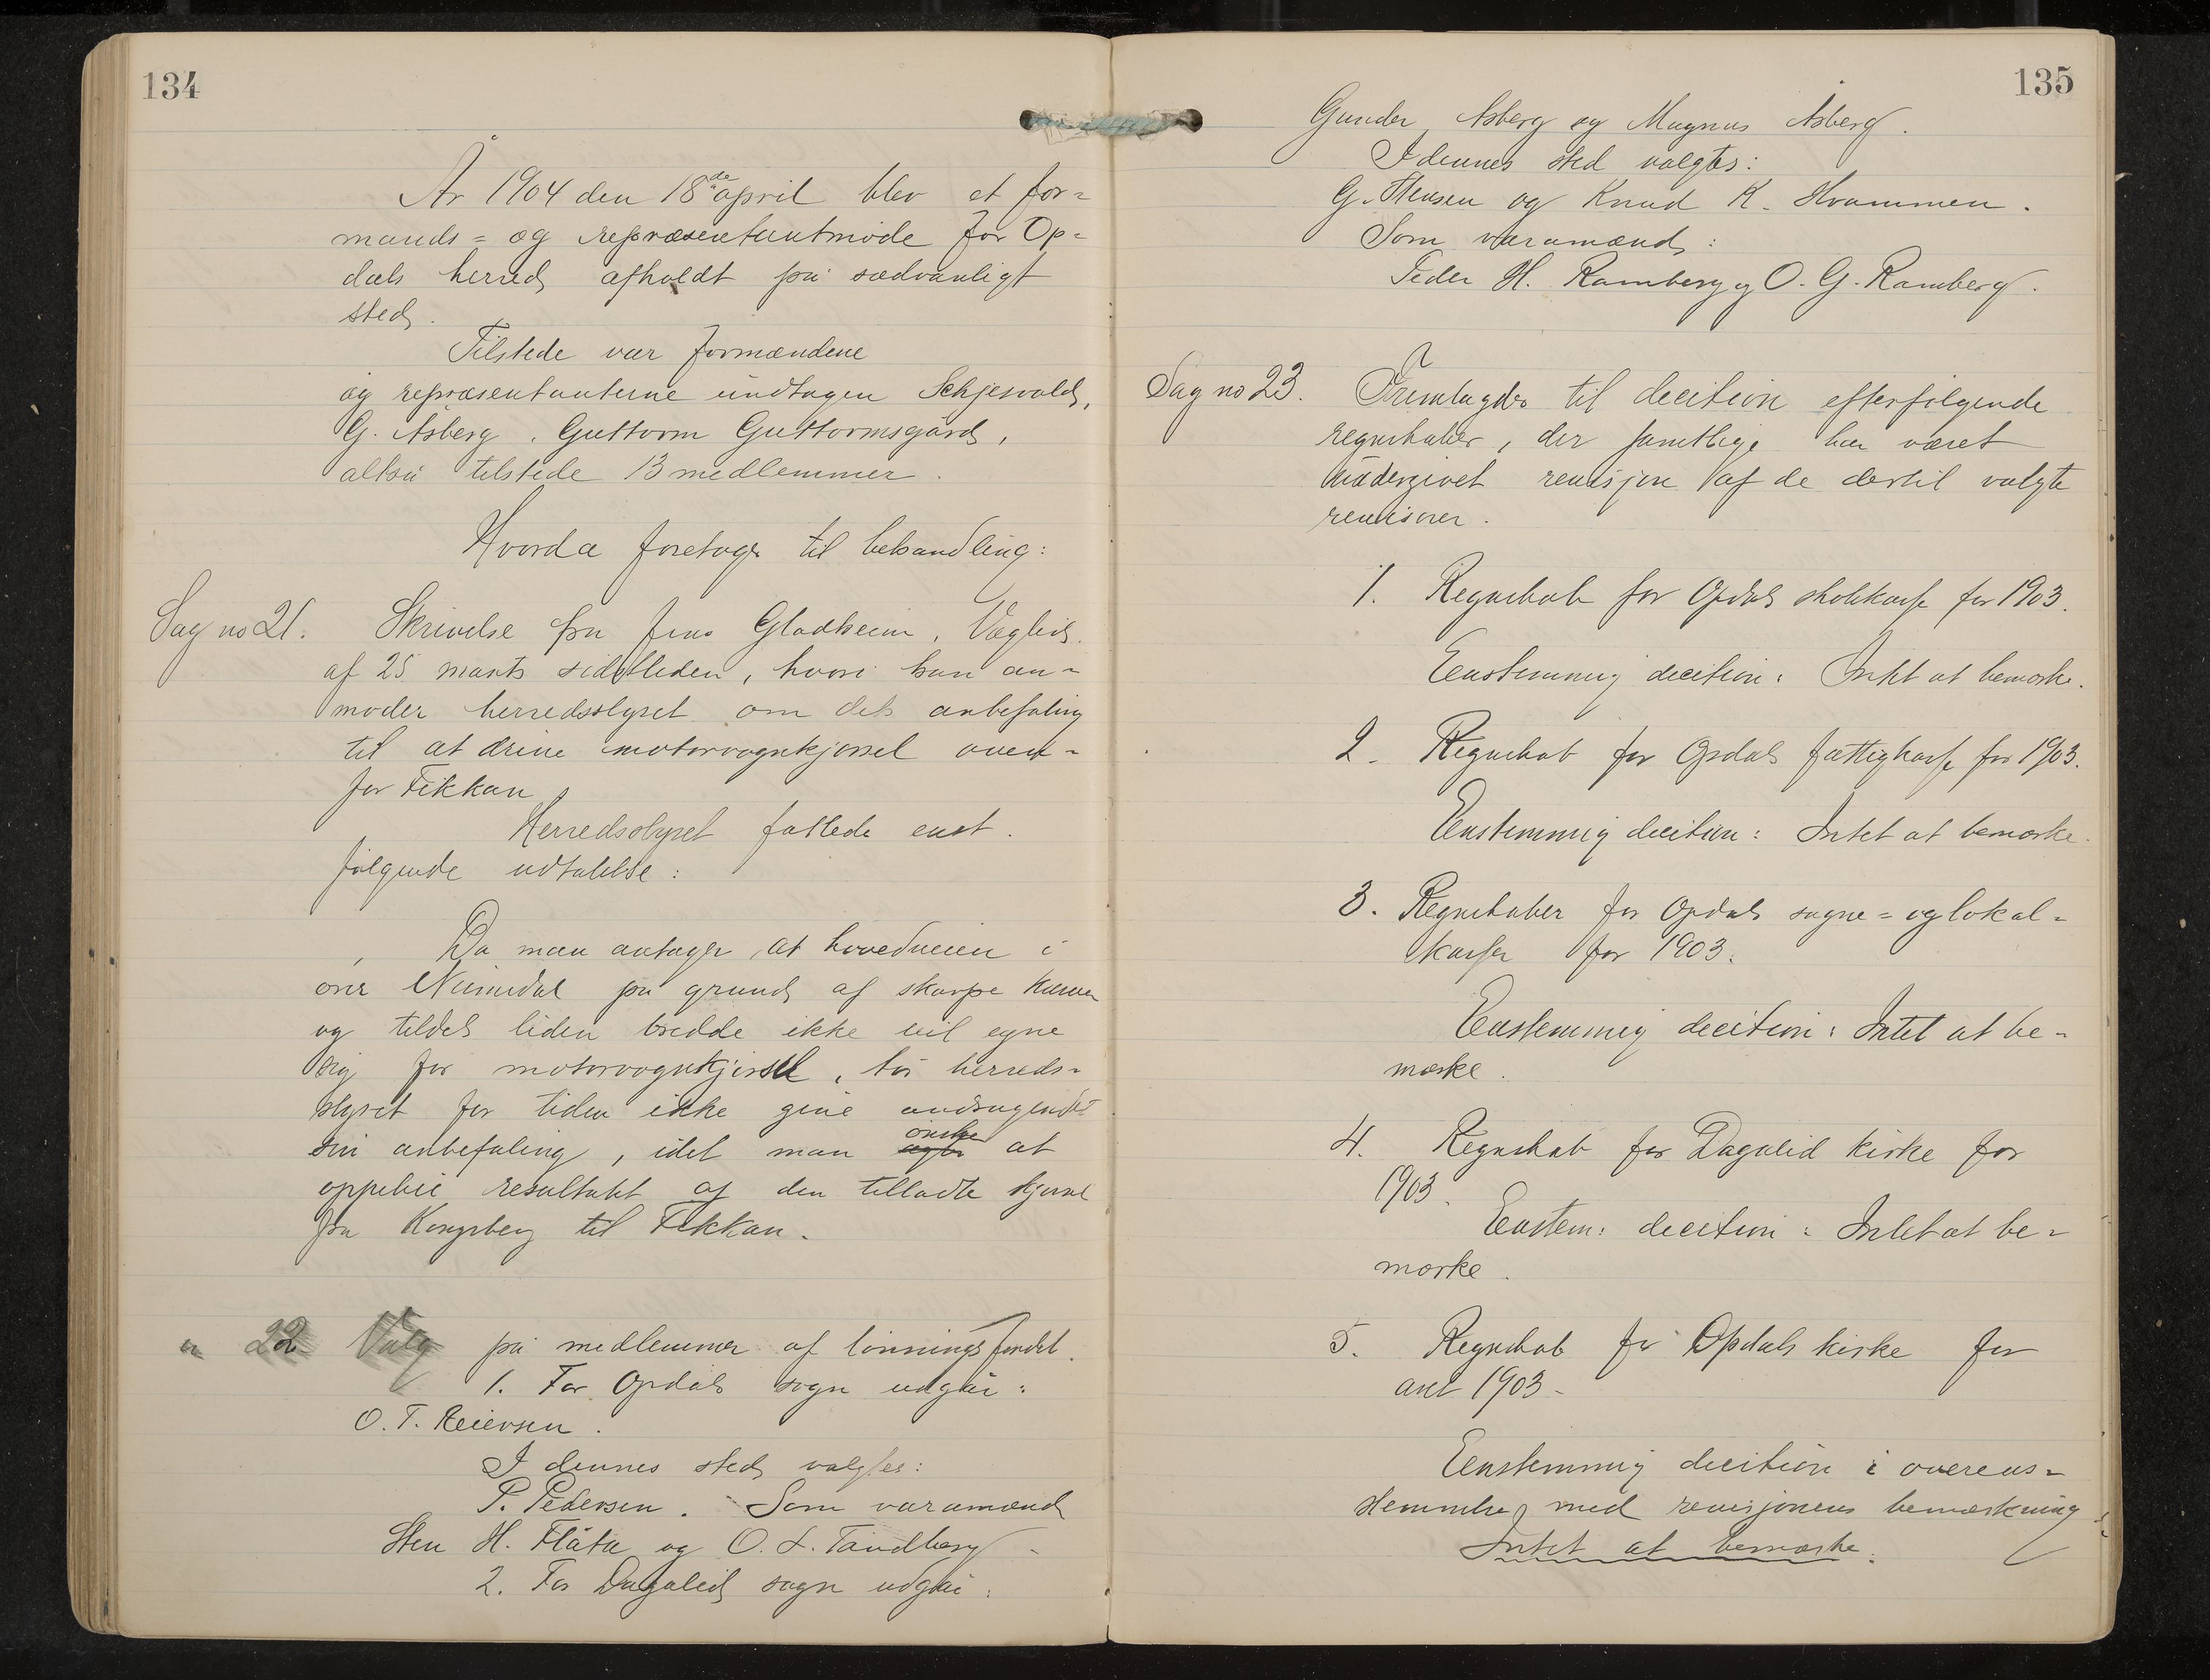 134
År 1904 den 18de april blev et for=
mands= og repræsentantmøde for Op=
dals herred afholdt på sædvanligt
sted.
Tilstede var formændene
og repræsentanterne undtagen Schjesvold,
G. Åsberg, Guttorm Guttormsgård,
altså tilstede 13 medlemmer.
Hvorda foretoges til behandling:
Sag no 21. Skrivelse fra Jens Gladheim, Veglid
af 25 marts sidstleden, hvori han an=
moder herredsstyret om dets anbefaling
til at drive motorvognkjørsel oven=
for Fikkan
Herredsstyret fattede enst.
følgende udtalelse:
Da man antager, at hovedveien i
øvre Numedal på grund af skarpe kurver
og tildels liden bredde ikke vil egne
sig for motorvognkjørsel, tør herreds=
styret for tiden ikke give andragendet
sin anbefaling, idet man ønsker at
oppebie resultatet af den tilladte kjørsel
fra Kongsberg til Fikkan.
" 22 Valg på medlemmer af lønningsfondet.
1. For Opdals sogn udgår:
O. T. Reiersen.
I dennes sted valgtes:
P. Pedersen. Som varamænd
Sten H. Flåta og O. L. Tandberg.
2. For Dagalid sogn udgår:
135
Gunder Åsberg og Magnus Åsberg.
I dennes sted valgtes:
G. Stensen og Knud K. Hvammen.
Som varamænd:
Peder H. Ramberg og O. G. Ramberg.
Sag no 23. Fremlagdes til decition efterfølgende
regnskaber, der samtlige har været
undergivet revisjon af de dertil valgte
revisorer.
1. Regnskab for Opdals skolekasse for 1903.
Eenstemmig decition: Intet at bemærke.
2. Regnskab for Opdals fattigkasse for 1903.
Eenstemmig decition: Intet at bemærke.
3. Regnskaber for Opdals sogne= og lokal=
kasser for 1903.
Eenstemmig decition: Intet at be=
mærke.
4. Regnskab for Dagalid kirke for
1903.
Eenstem: decition: Intet at be=
mærke.
5. Regnskab for Opdals kirke for
året 1903.
Eenstemmig decition i overens=
stemmelse med revisjonens bemærkning
Intet at bemærke.